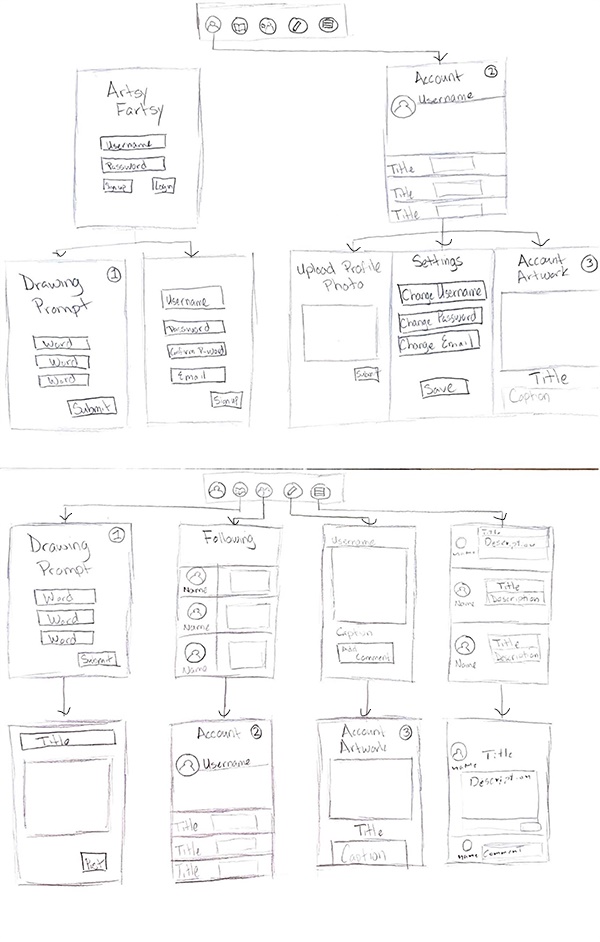 Artsy
Fartsy
Username
Password
Sign up
Login
Account
2
Username
Title
Title
Title
Drawing
Prompt
1
Word
Word
Word
Submit
Username
Password
Confirm Password
Email
Sign up
Upload Profile
Photo
Submit
Settings
Change Username
Change Password
Change Email
Save
Account
Artwork
3
Title
Caption
Drawing
Prompt
1
Word
Word
Word
Submit
Following
Name
Name
Name
Username
Caption
Add
Comment
Title
Description
Name
Title
Description
Name
Title
Description
Name
Title
Post
Account
2
Username
Title
Title
Title
Account
Artwork
3
Title
Caption
Name
Title
Description
Name
Comment